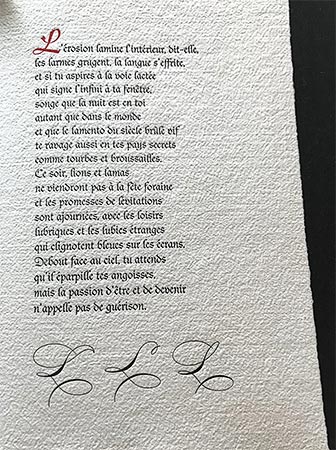 L'érosion lamine l'intérieur, dit-elle,
les larmes grugent, la langue s'effrite,
et si tu aspires à la voie lactée
qui signe l'infini à ta fenêtre,
songe que la nuit est en toi
autant que dans le monde
et que le lamento du siècle brûle vif
te ravage aussi en tes pays secrets
comme tourbes et broussailles.
Ce soir, lions et lamas
ne viendront pas à la fête foraine
et les promesses de lévitations
sont ajournées, avec les loisirs
lubriques et les lubies étranges
qui clignotent bleues sur les écrans.
Debout face au ciel, tu attends
qu'il éparpille tes angoisses,
mais la passion d'être et de devenir
n'appelle pas de guérison.
L L L